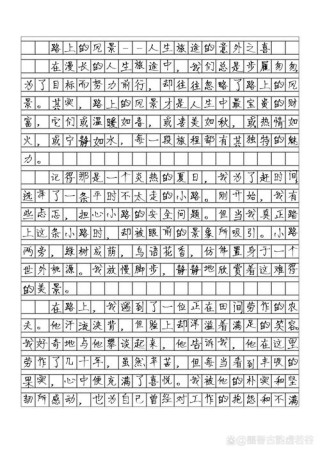 路上的风景--人生旅途的意外之喜
在漫长的人生旅途中，我们总是步履匆匆，
为了目标而努力前行，却往往忽略了路上的风
景。其实，路上的风景才是人生中最宝贵的财
富，它们或温暖如春，或凄美如秋，或热情如
火，或宁静如水，每一段旅程都有其独特的魅
力。
记得那是一个炎热的夏日，我为了赶时间，
选择了一条平时不太走的小路。刚开始，我有
些忐忑，担心小路的安全问题。但当我真正踏
上这条小路时，却被眼前的景象所吸引。小路
两旁，绿树成荫，鸟语花香，仿佛置身于一个
世外桃源。我放慢脚步，静静地欣赏着这难得
的美景。
在路上，我遇到了一位正在田间劳作的农
夫。他汗流浃背，但脸上却洋溢着满足的笑容。
我好奇地与他攀谈起来，他告诉我，他在这里
劳作了几十年，虽然辛苦，但每当看到丰收的
果实，心中便充满了喜悦。我被他的朴实和坚
韧所感动，也为自己曾经对工作的抱怨和不满